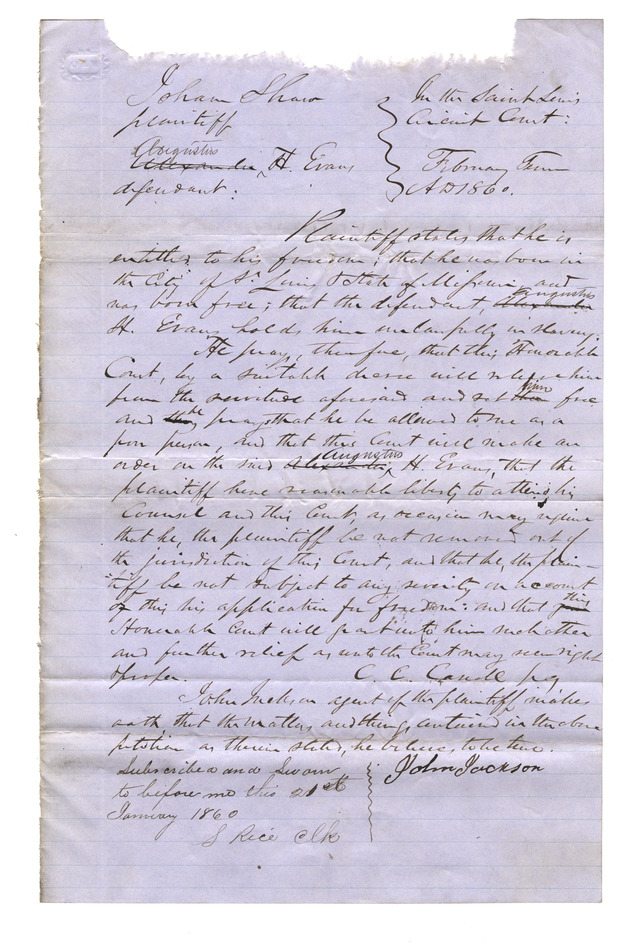 Isham Shaw
plaintiff
Augustus
Alexander H. Evans
defendant:
In the Saint Louis
Circuit Court:
February Term
AD 1860.
Plaintiff states that he is
entitled to his freedom; that he was born in
the City of St Louis & State of Missouri, and
was born free; that the defendant, Alexander Augustus
H. Evans holds him unlawfully in slavery.
He prays, therefore, that this Honorable
Court, by a suitable decree will relieve him
from the servitude aforesaid and set him free
and he prays that he be allowed to sue as a
poor person, and that this Court will make an
order on the said Alexander Augustus H. Evans, that the
plaintiff have reasonable liberty to attend his
Counsel and this Court, as occasion may require
that he, the plaintiff be not removed out of
the jurisdiction of this Court, and that he, the plain-
tiff be not subject to any severity on account
of this his application for freedom: and that this
Honorable Court will grant unto him such other
and further relief as unto the Court may seem right
& proper.
C. C. Carroll
John Jackson agent of the plaintiff makes
oath that the matters and things contained in the above
petition as therein stated, he believes to be true.
Subscribed and Sworn
to before me this 21st
January 1860
S Rice Clk
John Jackson